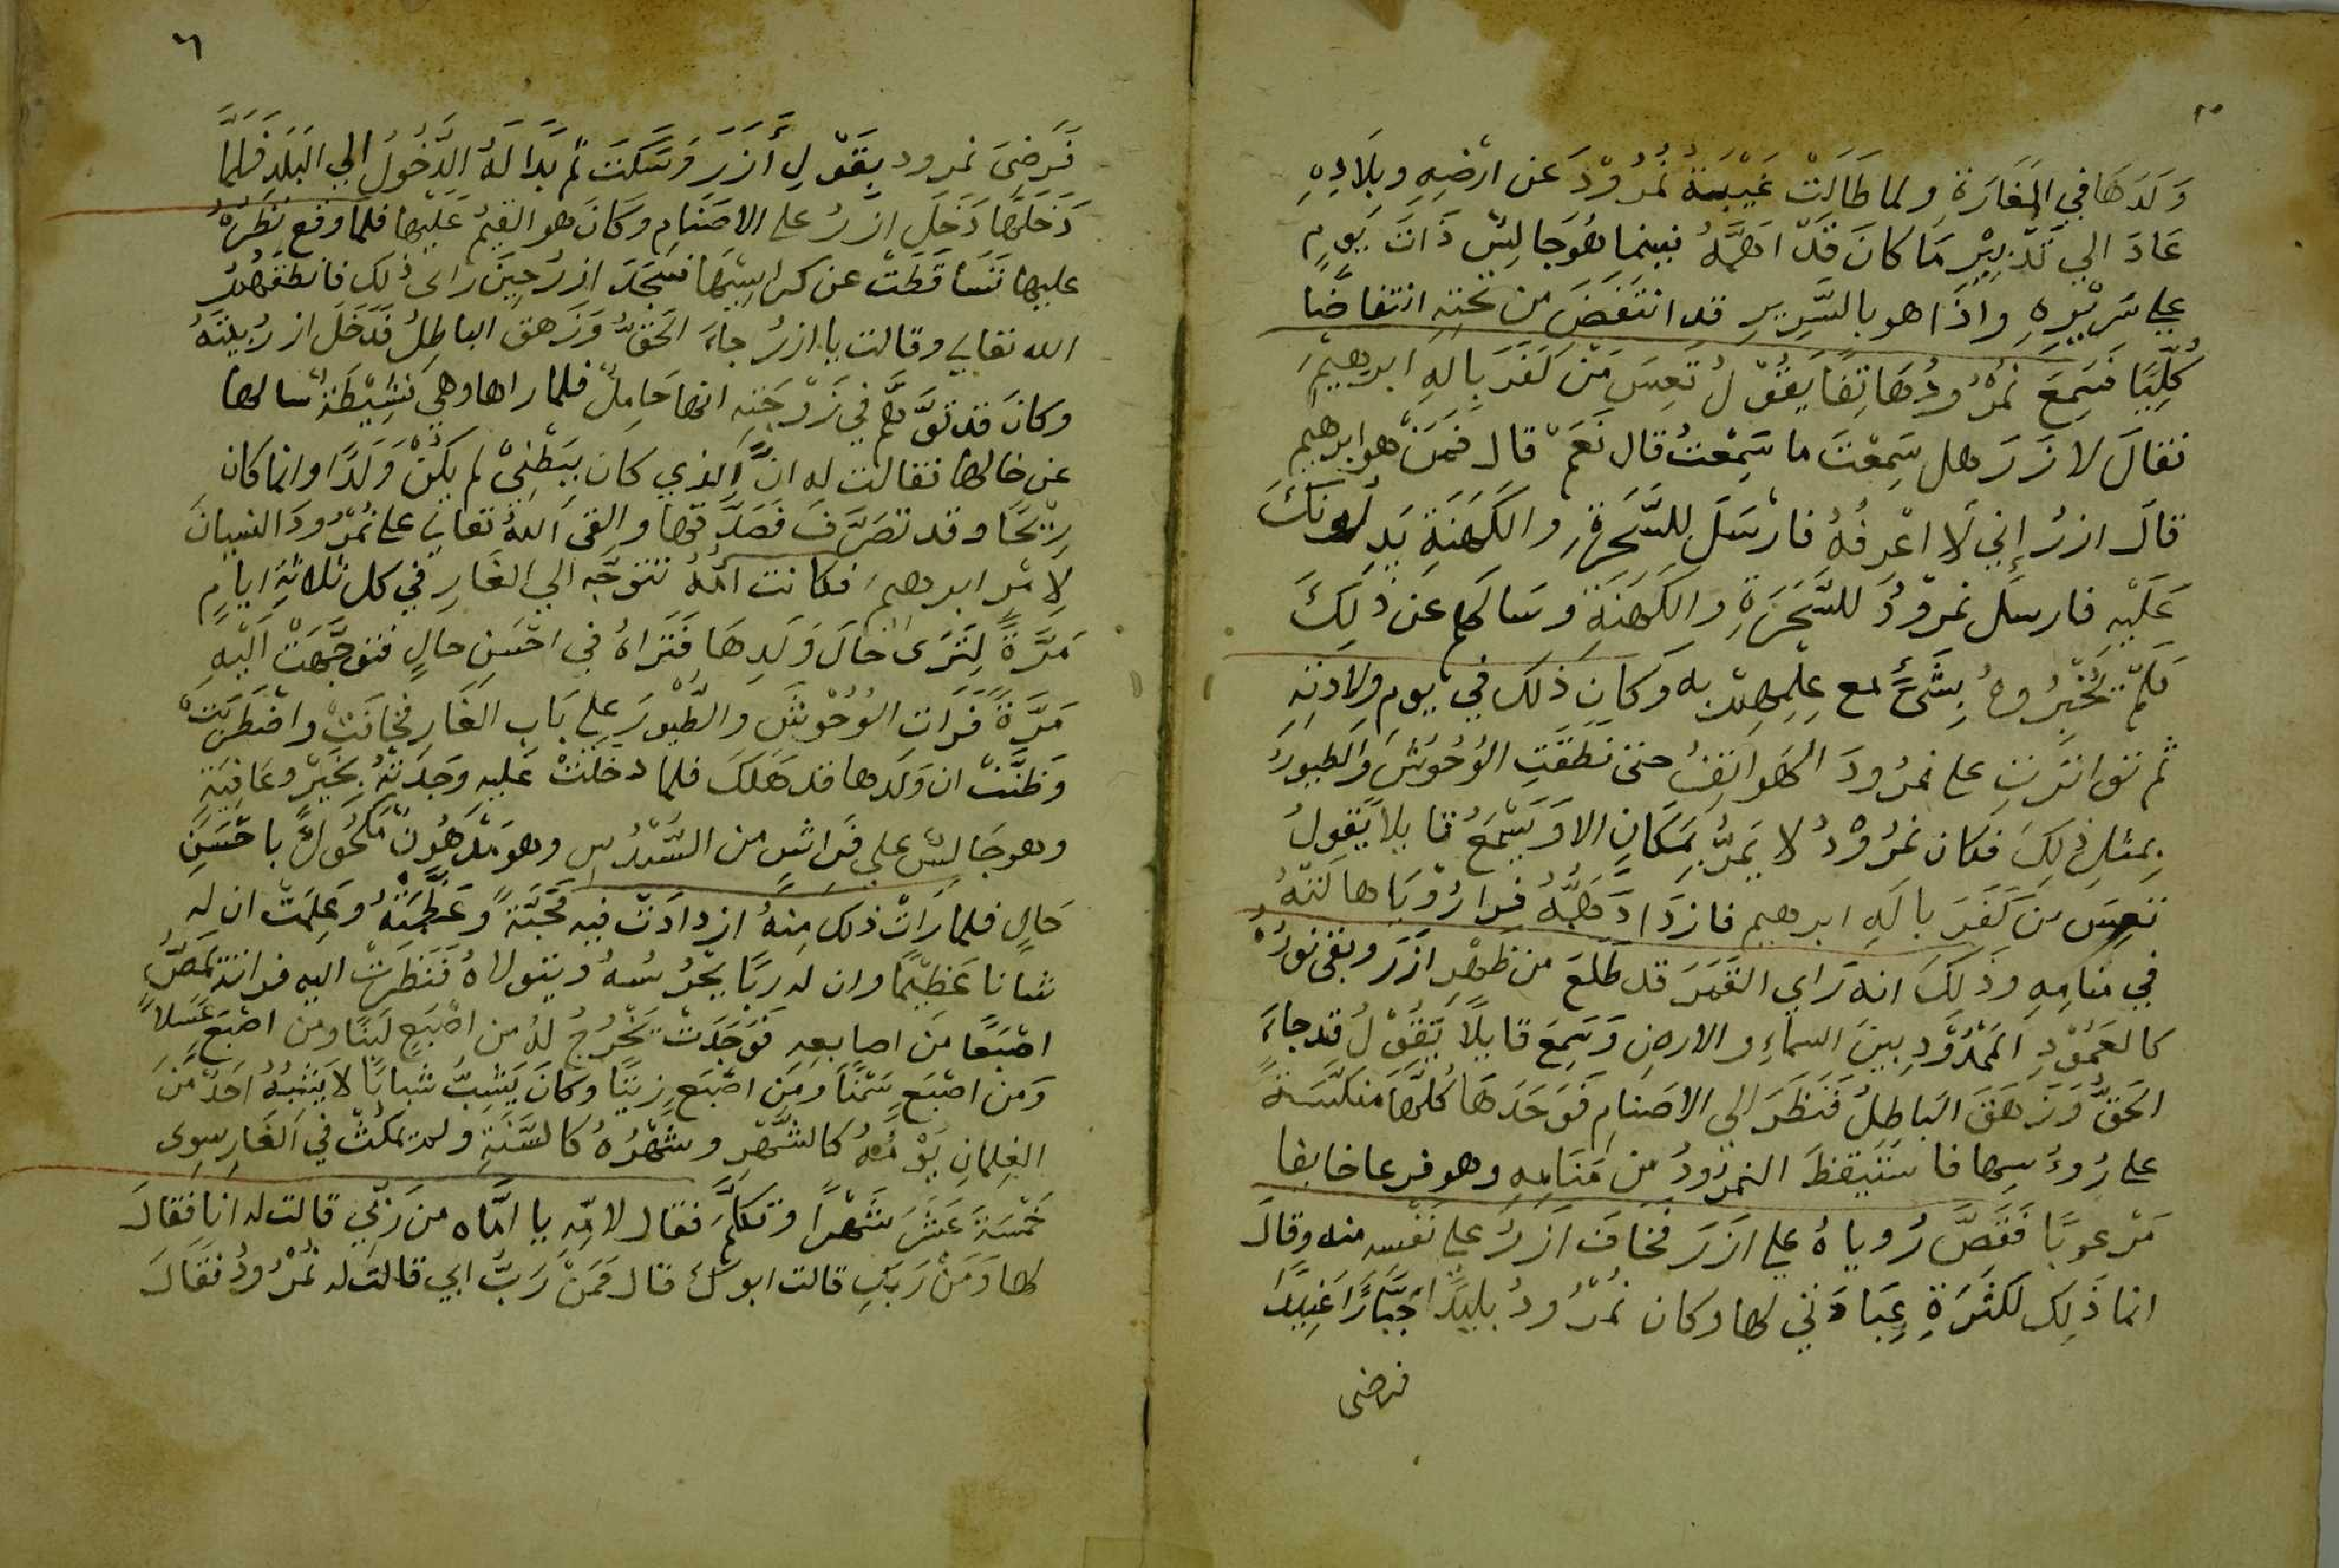 وَلَدَهَا في المَغَارَةِ ولما طَالَتْ غَيْبَةُ نُمْرُوْدَ عن ارْضِهِ وبِلَادِهِ
عَادَ الي تَدْبِيْرِ مَا كانَ قَدْ اهَمَّهُ فبينما هُوَ جَالِسٌ ذَاتَ يَومٍ
علي سَرِيْرِهِ واذَا هو بالسَّرِيرِ قد انتَفَضَ من تحْتِهِ انتفاضًا
كُلِّيًا فسَمِعَ نُمْرُودُ هَاتِفًا يقُوْلُ تَعِسَ مَنْ كَفَرَ بِالهِ ابرهيمَ
فقالَ لازَرَ هل سَمِعْتَ ما سَمِعْتُ قال نَعَمْ قال فمَنْ هو ابرهيم
قالَ ازرُ إني لَا اعْرِفُهُ فارْسَلَ لِلسَّحَرَةِ والكَهَنَةِ يَدلُونَكَ
عَلَيْهِ فارسَل نمْرُودُ للسَّحَرَةِ والكَهَنَةِ وسَالهم عَن ذَلِكَ
فَلَمْ يُخْبِرُوهُ بِشَيءٍ مع عِلمِهِم به وَكان ذلك في يومِ ولادتِهِ
ثم تواتَرَتْ على نمرُودَ الهَواتِفُ حتى نَطَقَتِ الوُحُوشُ والطيورُ
بِمثلِ ذلِكَ فكان نمرُوْدُ لا يَمرُّ بمَكانٍ الا وَيَسْمَعُ قايلا يَقُولُ
تعِسَ مَن كَفَرَ بالَهِ ابرهيم فازدَادَ هَمُّهُ فرا رُوْيَا هالَتْهُ
في منامِهِ وذَلِكَ انه رَاي القَمَرَ قد طَلَعَ من ظَهْرِ ازَرَ وبَقى نورُهُ
كالعَمُوْدِ المَمْدُوْدِ بينَ السماءِ والارضِ وَسَمِعَ قايلًا يَقُوْلُ قد جاءَ
الحَقُّ وَزَهَقَ البَاطِلُ فَنَظَرَ الى الاصنامِ فَوَجَدَهَا كُلَّهَا منَكَّسَةً
على رُوُسِهَا فاستَيقظَ النمرُودُ من مَنَامِهِ وهو فزعا خايفا
مَرْعوبًا فَقَصَّ رُوياهُ علي ازَرَ فخافَ ازرُ علي نَفْسِه منه وقالَ
انما ذَلِك لكَثْرَةِ عِبَادَتي لها وكان نُمْرُودُ بليدًا جَبَّارًا عَنِيدًا
فرضى
٦
فَرَضِيَ نمرود بقَوْلِ أزَرَ وَسَكَتَ ثم بَدَا لَهُ الدُّخُولُ الي البَلَدِ فَلَمَّا
دَخَلَهَا دَخَلَ ازَرُ على الاصَنامِ وَكَانَ هو القَيِّمُ عَلَيْها فلمَّا وقع نَظَرُهُ
عليها تَسَاقَطَتْ عن كراسِيِّهَا فسَجَدَ ازرُ حِينَ راى ذلِكَ فانطقَهُمُ
الله تعالي وقالت يا ازرُ جاءَ الحَقُّ وَزَهقَ الباطِلُ فَدَخَلَ ازر بيتَهُ
وكانَ قد توَّهَمَ في زَوْجَتِهِ انها حَامِلٌ فلما راها وهي نَشِيْطَةٌ سالها
عن حالها فقالت له انَّ الذي كان ببَطْنِيْ لم يكُنْ وَلَدًا وانما كان
رِيْحًا وقد تصَرَّفَ فصَدَّقَها والقى اللهُ تعالى على نُمْرُودَ النسيانَ
لِامْرِ ابرهيمَ فكانت امُّهُ تتوجَّه الي الغَارِ في كل ثلاثةِ ايامٍ
مَرَّةً لِتَرَى حَالَ وَلَدِهَا فَتَرَاهُ في احْسَنِ حالٍ فتوجَّهَتْ الَيْهِ
مَرَّةً فَرَاتِ الوُحُوْشَ والطُّيُورَ علي بَابِ الغَارِ فخافَتْ واضْطَرَبَتْ
وَظَنَّتْ ان وَلَدها قد هَلَكَ فلما دخَلَتْ عَلَيهِ وَجَدَتْهُ بخَيْرٍ وعَافِيَةٍ
وهو جَالِسٌ علي فَراشٍ من السُّنْدُسِ وهو مَدْهُونٌ مَكْحُولٌ باحْسَنِ
حَالٍ فلما رَاتْ ذلك مِنهُ ازدادَتْ فيه مُحَبَّةً وَعَظَّمَتْهُ وعَلِمَتْ ان له
شانا عَظِيْمًا وان له ربًا يحْرُسُهُ ويتولاهُ فَنَظَرَتْ اليه فراته يَمَصُّ
اصْبَعًا مَن اصابعِهِ فوَجَدَتْ يَخْرُجُ لهُ من اصْبَعٍ لَبَنًا ومن اصْبَعٍ عَسَلاً
وَمن اصْبَعٍ سَمْنًا ومَن اصْبَعٍ زيتًا وكانَ يَشِبُّ شبابًا لا يَشبهُهُ احَدٌ مَن
الغِلمانِ يَوْمُهُ كالشَّهْرِ وشَهْرُهُ كالسَّنَةِ ولم يمكُثْ في الغَارِ سِوى
خَمْسَةَ عَشَرَ شَهْرًا وتكلَّمَ فقال لامِّهِ يا امَّاه من رَبّي قالت له انا فقالَ
لها وَمَنْ رَبّكِ قالت ابوكَ قال فَمَنْ رَبُّ ابي قالت له نُمْرُودُ فَقَالَ